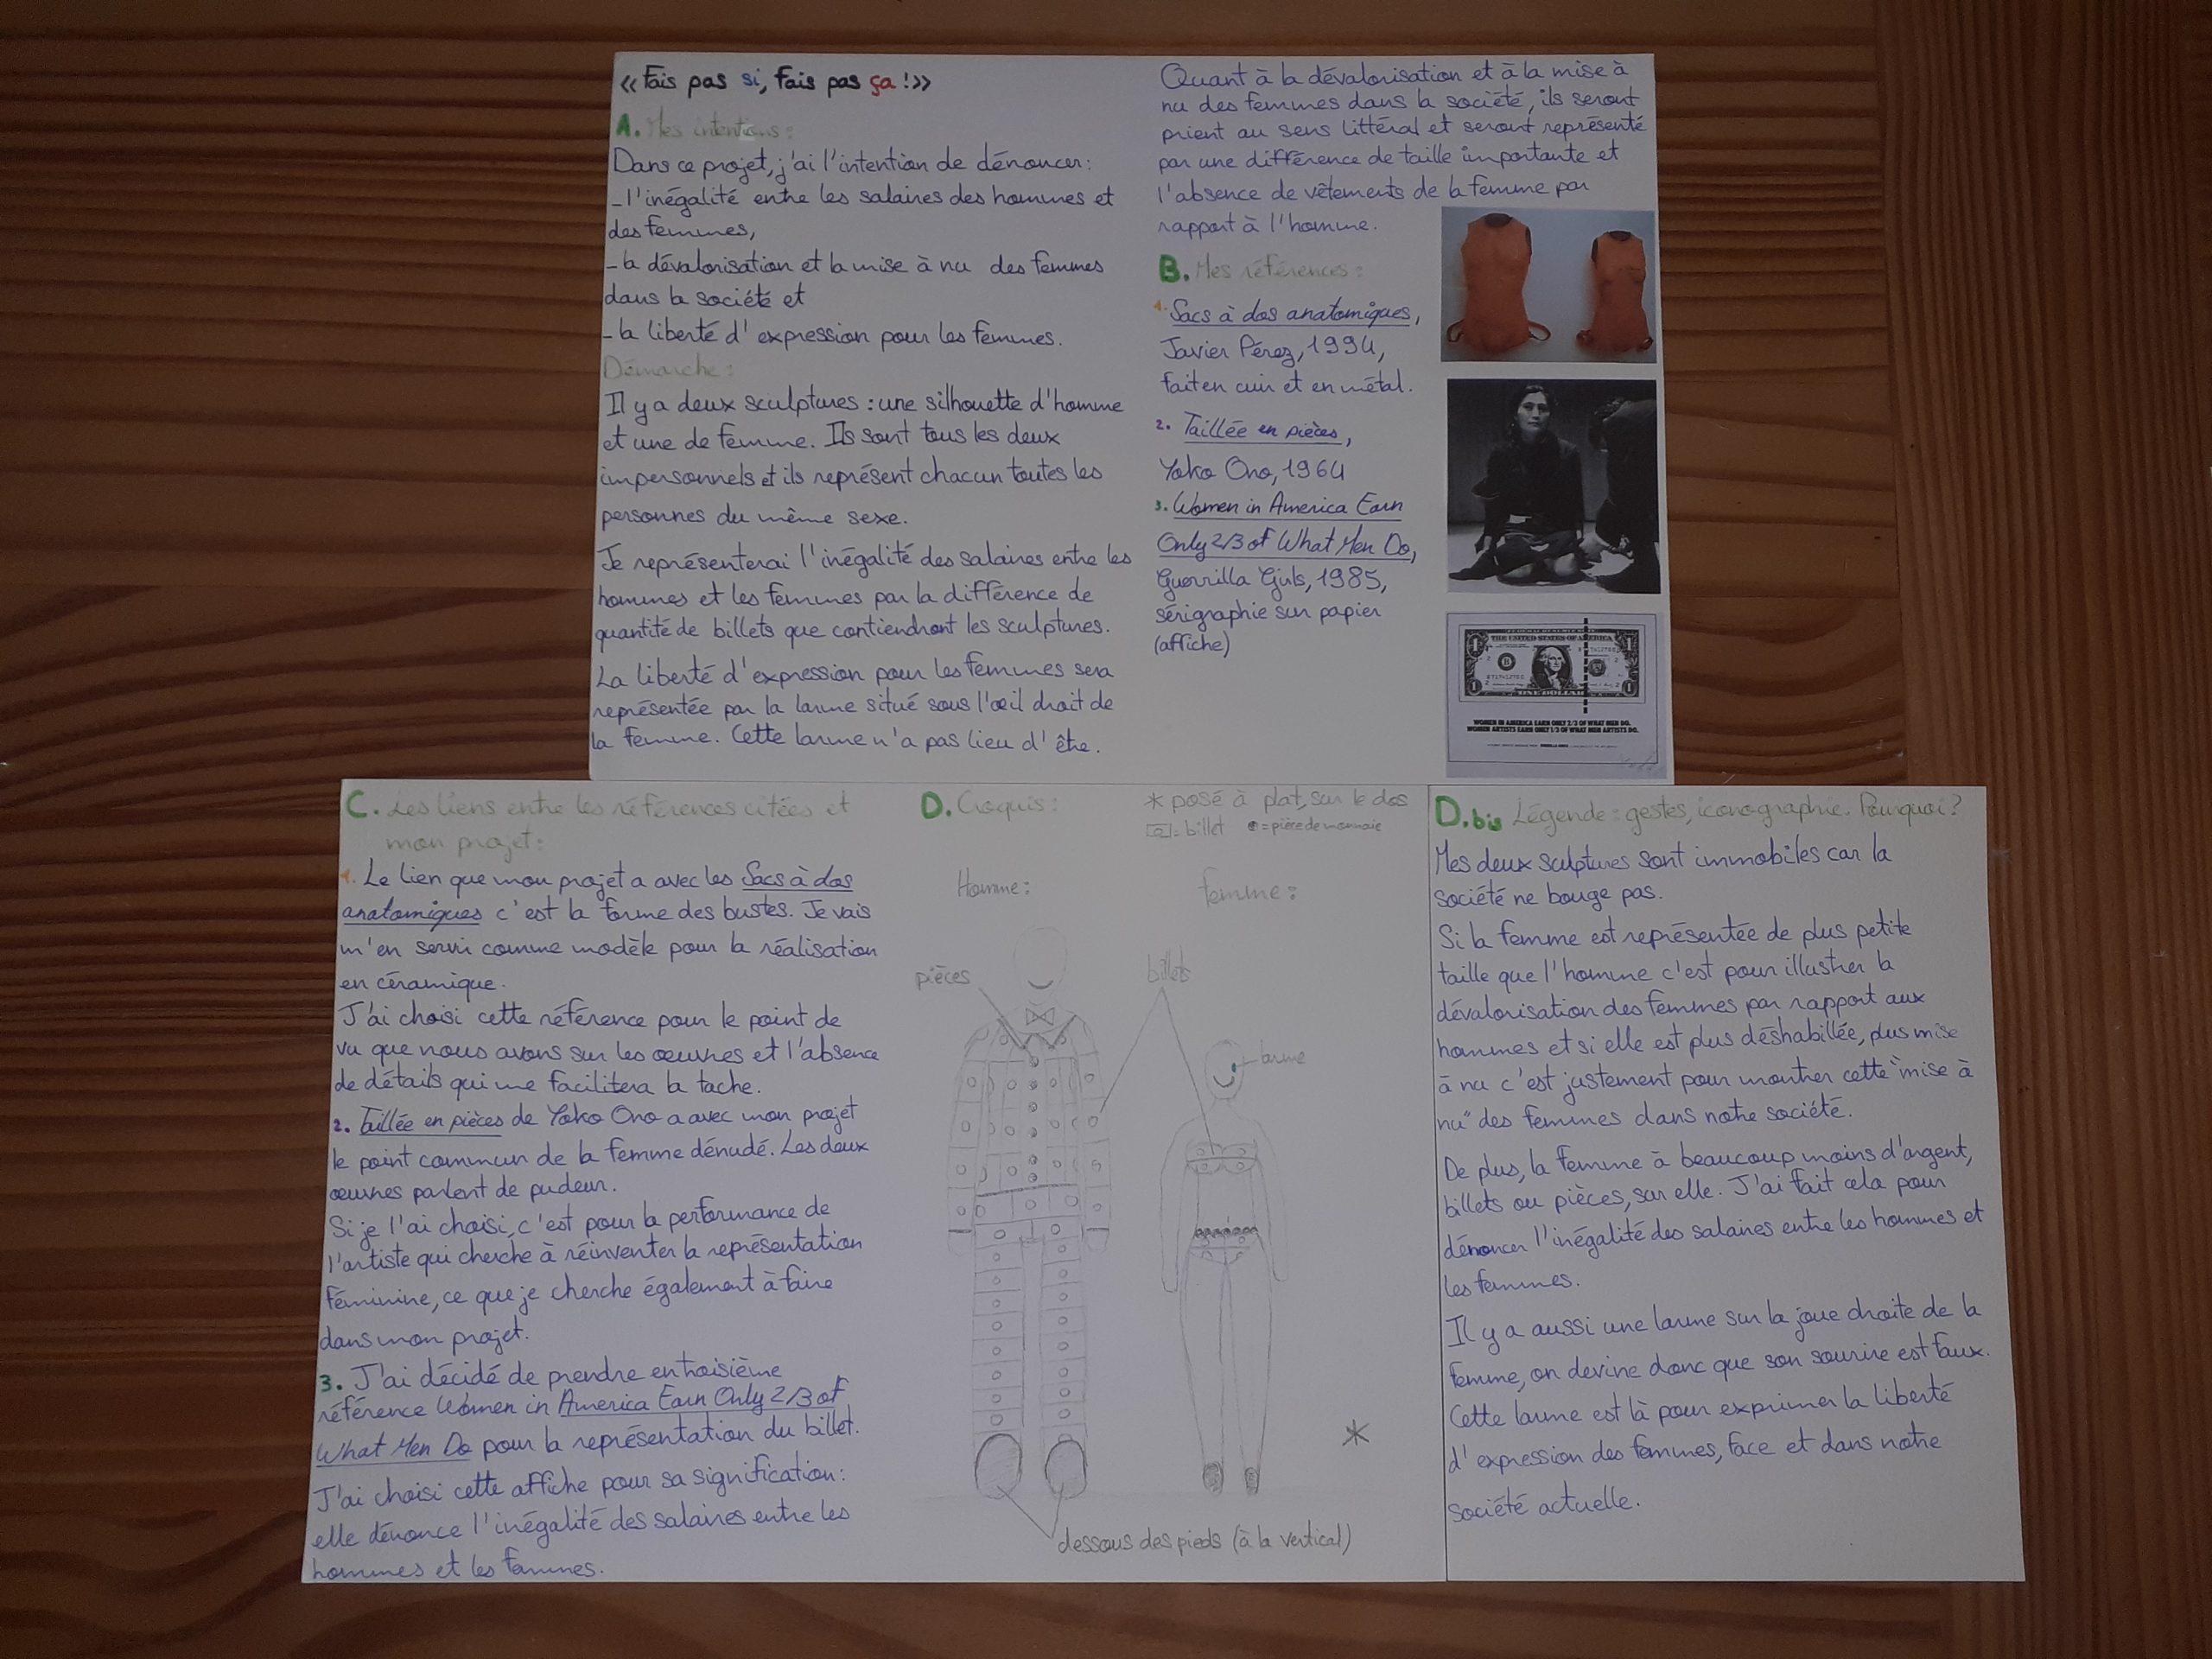 « Fais pas si, Fais pas ça ! »
A. Mes intentions :
Dans ce projet, j'ai l'intention de dénoncer :
- l'inégalité entre les salaires des hommes et
des femmes,
- la dévalorisation et la mise à nu des femmes
dans la société et
- la liberté d'expression pour les femmes.
Démarche :
Il y a deux sculptures : une silhouette d'homme
et une de femme. Ils sont tous les deux
impersonnels et ils représent chacun toutes les
personnes du même sexe.
Je représenterai l'inégalité des salaires entre les
hommes et les femmes par la différence de
quantité de billets que contiendront les sculptures.
La liberté d'expression pour les femmes sera
représentée par la larme situé sous l'œil droit de
la femme. Cette larme n'a pas lieu d'être.
Quant à la dévalorisation et à la mise à
nu des femmes dans la société, ils seront
prient au sens littéral et seront représenté
par une différence de taille importante et
l'absence de vêtements de la femme par
rapport à l'homme.
B. Mes références :
1. Sacs à dos anatomiques,
Javier Pérez, 1994,
fait en cuir et en métal.
2. Taillée en pièces,
Yoko Ono, 1964
3. Women in America Earn
Only 2/3 of What Men Do,
Guerrilla Girls, 1985,
sérigraphie sur papier
(affiche)
THE UNITED STATES OF AMERICA
ONE DOLLAR
WOMEN IN AMERICA EARN ONLY 2/3 OF WHAT MEN DO.
WOMEN ARTISTS EARN ONLY 1/3 OF WHAT MEN ARTISTS DO.
C. Les liens entre les références citées et
mon projet :
1. Le lien que mon projet a avec les Sacs à dos
anatomiques c'est la forme des bustes. Je vais
m'en servir comme modèle pour la réalisation
en céramique.
J'ai choisi cette référence pour le point de
vu que nous avons sur les œuvres et l'absence
de détails qui me facilitera la tache.
2. Taillée en pièces de Yoko Ono a avec mon projet
le point commun de la femme dénudé. Les deux
œuvres parlent de pudeur.
Si je l'ai choisi, c'est pour la performance de
l'artiste qui cherche à réinventer la représentation
féminine, ce que je cherche également à faire
dans mon projet.
3. J'ai décidé de prendre en troisième
référence Women in America Earn Only 2/3 of
What Men Do pour la représentation du billet.
J'ai choisi cette affiche pour sa signification :
elle dénonce l'inégalité des salaires entre les
hommes et les femmes.
D. Croquis :
* posé à plat, sur le dos
= billet = pièce de monnaie
Homme :
Femme :
pièces
billets
larme
*
dessous des pieds (à la vertical)
D.bis Légende : gestes, iconographie. Pourquoi ?
Mes deux sculptures sont immobiles car la
société ne bouge pas.
Si la femme est représentée de plus petite
taille que l'homme c'est pour illustrer la
dévalorisation des femmes par rapport aux
hommes et si elle est plus déshabillée, plus mise
à nu c'est justement pour montrer cette "mise à
nu" des femmes dans notre société.
De plus, la femme à beaucoup moins d'argent,
billets ou pièces, sur elle. J'ai fait cela pour
dénoncer l'inégalité des salaires entre les hommes et
les femmes.
Il y a aussi une larme sur la joue droite de la
femme, on devine donc que son sourire est faux.
Cette larme est là pour exprimer la liberté
d'expression des femmes, face et dans notre
société actuelle.